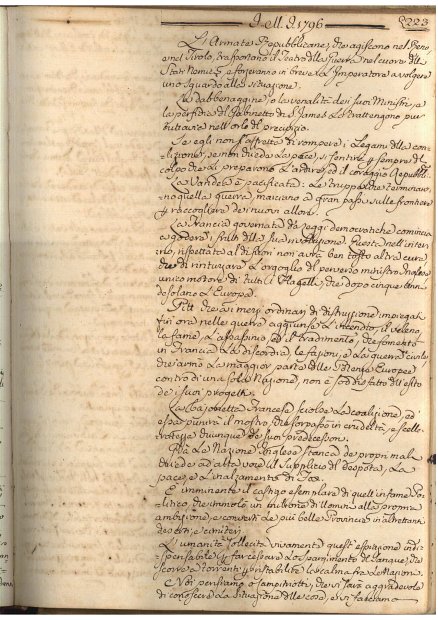 I. M. I. 1796 223
L'Armate Repubblicane, che agiscono nel Reno,
e nel Tirolo, trasportano il Teatro della Guerra nel cuore delli
Stati Nemici, e forzeranno in breve l'Imperatore a volgere
uno sguardo alla situazione.
La dabbenaggine, o la venalità dei suoi Ministri, e
la perfidia del Gabinetto di S. James lo trattengono per
buttare nell'orlo del precipizio.
Se egli non s'affretta di rompere i Legami della coa-
lizione, se non chiede la pace, si sentirà per sempre del
colpo che li preparono l'ardire, ed il coraggio Repubb.
La Vandea è pacificata: Le truppe che terminava-
no quella guerra, marciano a gran passo sulle frontiere
per raccogliere dei nuovi allori.
La Francia governata da leggi democratiche comincia
a godere i frutti della sua rivoluzione. Quieta nell'inter-
no, rispettata al di fuori non avrà ben tosto altra cura
che di rintuzzare l'orgoglio del perverso ministro Inglese
unico motore di tutti i flagelli, che dopo cinque anni
desolano l'Europa.
Pitt che ai mezzi ordinari di distruzione impiegati
fin ora nelle guerre aggiunse l'incendio, il veleno,
la fame, l'assassinio ed il tradimento; che fomentò
in Francia la discordia, le fazioni, e la guerra civile,
che armò la maggior parte delle Potenze Europee
contro di una sola Nazione, non è sodisfatto dell'esito
de' suoi progetti.
La bajonetta Francese scioglie la coalizione, ed
essa punirà il mostro, che sorpassò in crudeltà, e scelle-
ratezza chiunque de' suoi predecessori.
Già la Nazione Inglese stanca de' proprj mali
chiede ad alta voce il supplicio del despota, la
pace, e l'inalzamento di Fox.
È imminente il castigo esemplare di quell'infame Po-
litico, che immolò un milione di Uomini alla propria
ambizione, e convertì le più belle Provincie in altrettanti
deserti, e cimiterj.
L'umanità sollecita vivamente quest'espiazione indi-
spensabile per far cessare lo spargimento di sangue, che
scorre a torrenti; e ristabilire la calma fra le Nazioni.
Noi pensiamo o compatriotti, che vi sarà aggradevole
di conoscere la situazione delle cose, e vi facciamo